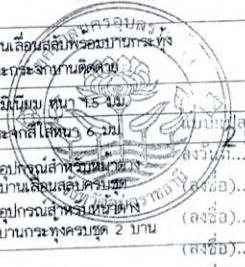 านเลื่อนสลับพร้อมบานกระทุ้ง
ะกระจกบานติดตาย
มิเนียม หนา 1.5 มม.
ะจกสีใสหนา 6 มม.
อุปกรณ์สำหรับหน้าต่าง
บานเลื่อนสลับครบชุด
อุปกรณ์สำหรับหน้าต่าง
บานกระทุ้งครบชุด 2 บาน
2
(ลงชื่อ)..
(ลงชื่อ)..
(ลงชื่อ)..